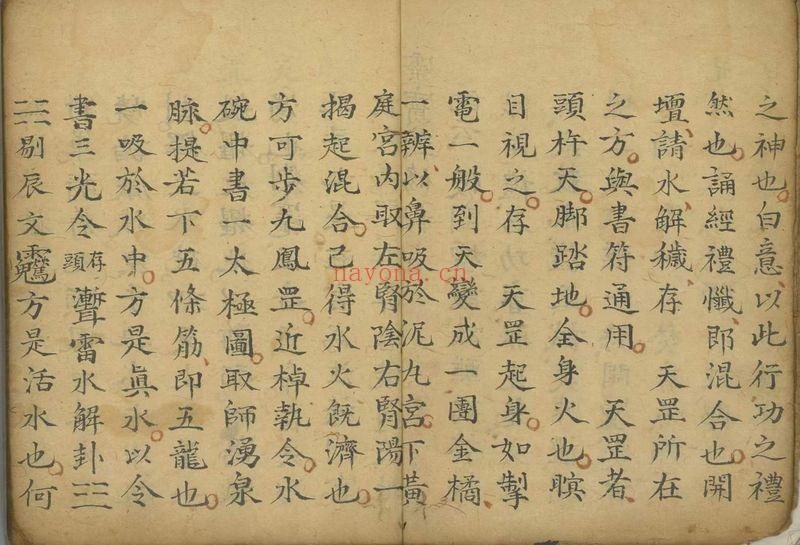 之神也白意以此行功之禮
然也誦經禮懺即混合也開
壇請水解穢存　天罡所在
之方與書符通用　天罡者
頭杵天脚踏地全身火也瞑
目視之存　天罡起身如掣
電一般到天變成一團金橘
一辨以鼻吸於泥九宮下黃
庭宮內取左腎陰右腎陽一
揭起混合己得水火既濟也
方可步九鳳罡近棹執令水
碗中書一太極圖取師湧泉
脉提若下五條筋即五龍也
一吸於水中方是眞水以令
書三光令存頭雷水解卦三三
三三剔辰文方是活水也何
nayona.cn